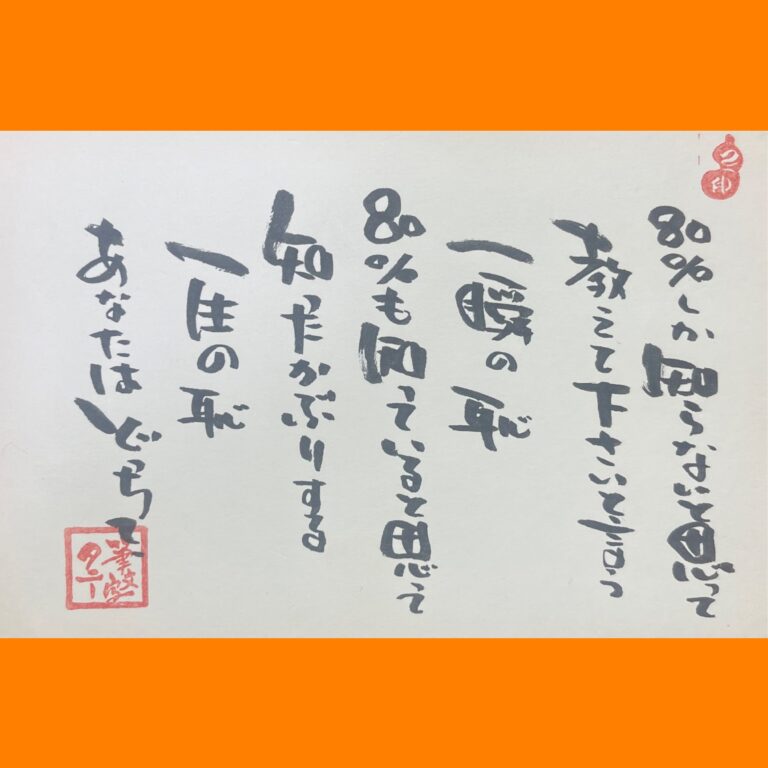 80%しか知らないと思って
教えて下さいと言う
一瞬の恥
80%も知っていると思って
知ったかぶりする
一生の恥
あなたはどっち？